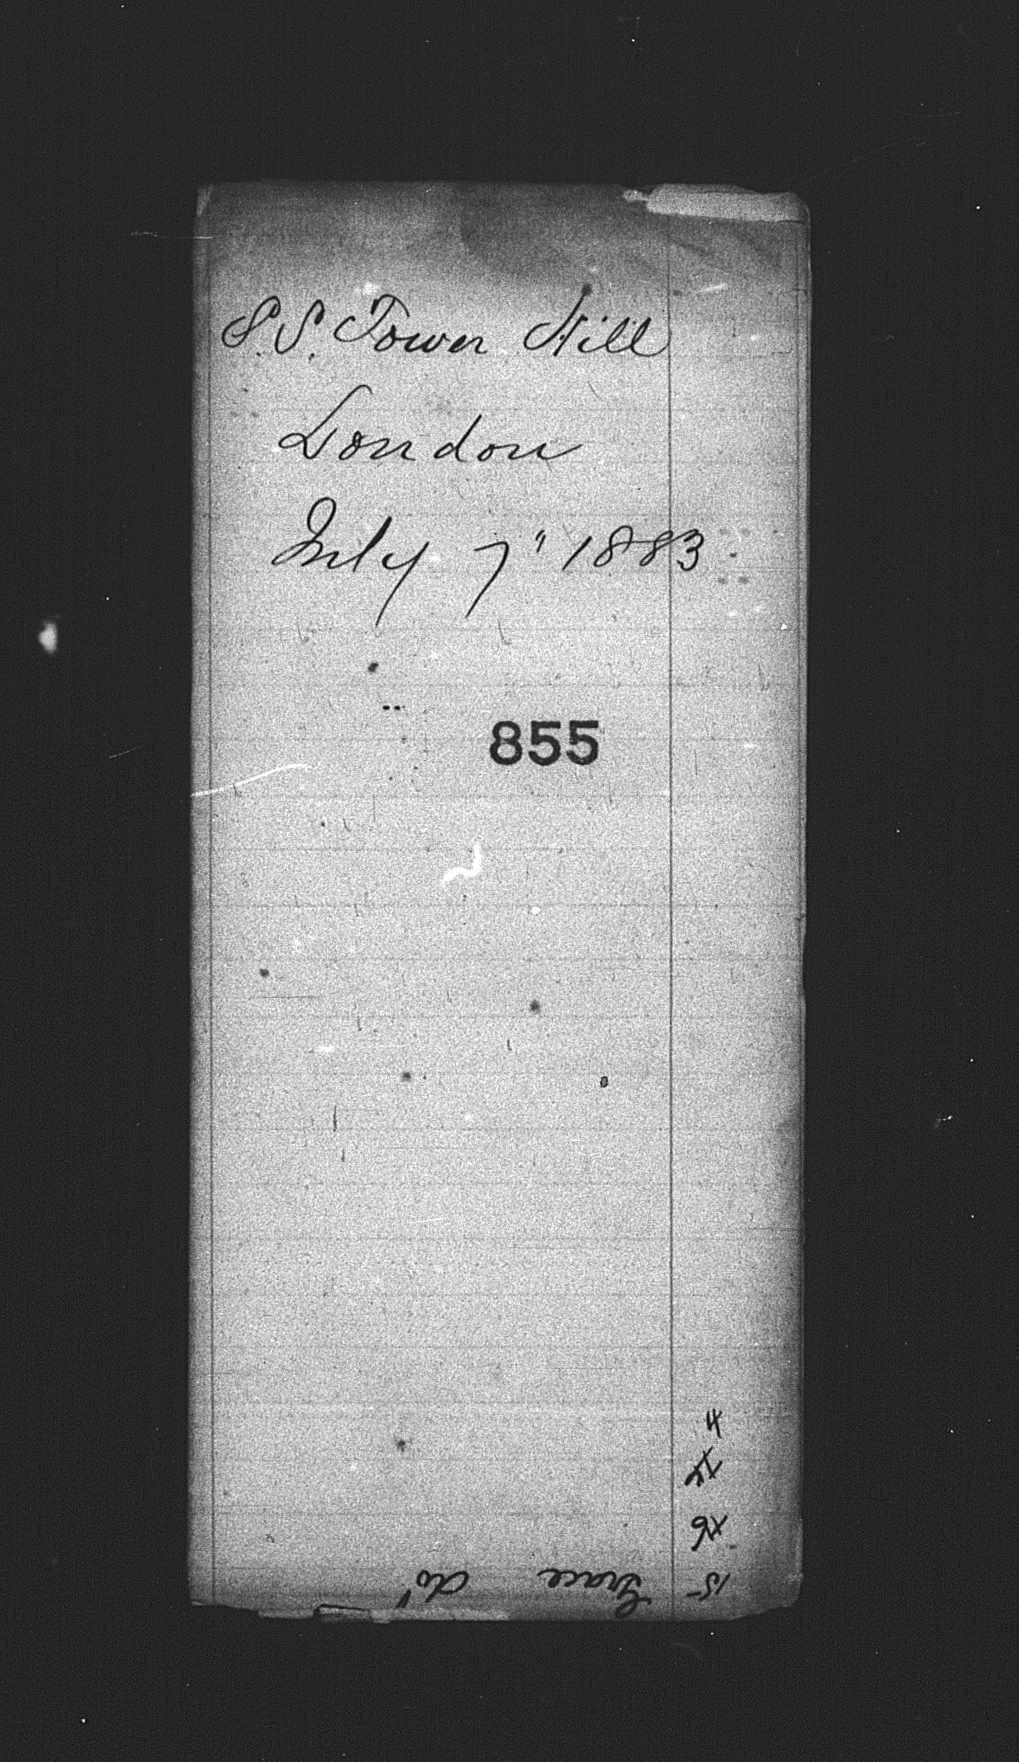 S.S. Tower Hill
London
July 7" 1883
855
15 Grace do